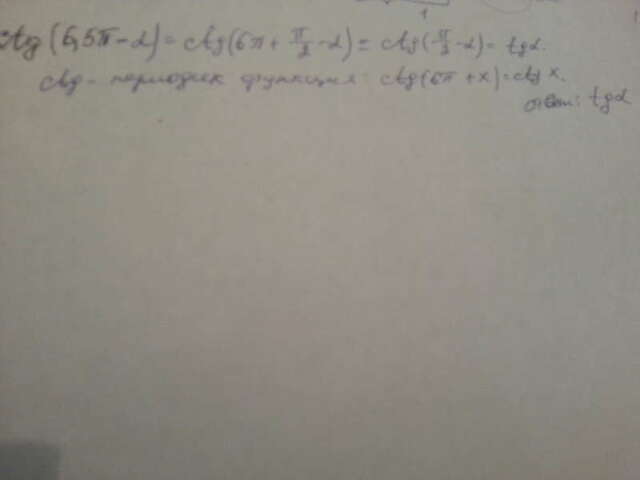 1
ctg(6,5π-α) = ctg(6π + π/2 - α) = ctg(π/2 - α) = tgα.
ctg - периодическ функция: ctg(6π + x) = ctg x.
ответ: tgα